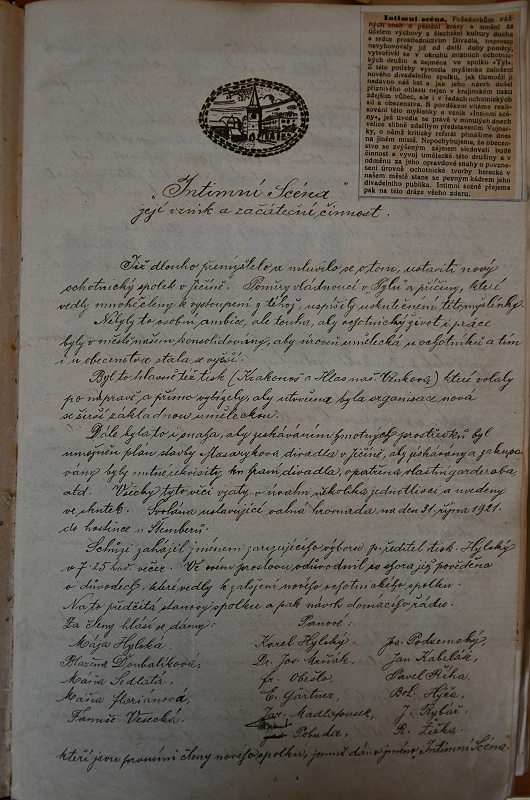 Intimní scéna. Požadavkům váž-
ných snah o pěstění krásy a umění za
účelem výchovy a šlechtění kultury ducha
a srdce prostřednictvím Divadla, naprosto
nevyhovovaly již od delší doby poměry,
vytvořivší se v okruhu místních ochot-
nických družin a zejména ve spolku »Tyl«.
Z této potřeby vyrostla myšlenka založení
nového divadelního spolku, jak tlumočil ji
nedávno náš list a jak jeho návrh došel
příznivého ohlasu nejen v krajinském tisku
zdejším vůbec, ale i v řadách ochotnických
sil a obecenstva. S povděkem vítáme reali-
sování této myšlenky a vznik »Intimní scé-
ny«, jež uvedla se právě v minulých dnech
velice slibně zdařilým představením Vojnar-
ky, o němž kritický referát přinášíme dnes
na jiném místě. Nepochybujeme, že obecen-
stvo se zvýšeným zájmem sledovati bude
činnost a vývoj umělecké této družiny a v
odměnu za jeho opravdové snahy o povzne-
sení úrovně ochotnické tvorby herecké v
našem městě stane se pevným kádrem jeho
divadelního publika. Intimní scéně přejeme
pak na této dráze všeho zdaru.
„Intimní Scéna"
její vznik a začáteční činnost.
Již dlouho přemýšlelo a mluvilo se o tom, ustaviti nový
ochotnický spolek v Jičíně. Poměry vládnoucí v Tylu a příčiny, které
vedly mnohé členy k vystoupení z téhož, uspíšily uskutečnění této myšlenky.
Nebyly to osobní ambice, ale touha, aby ochotnický život i práce
byly v městě našem konsolidovány, aby úroveň umělecká u ochotníků a tím
i u obecenstva stala se vyšší.
Byl to hlavně též tisk (Krakonoš a Hlas naš. Venkova) které volaly
po nápravě a přímo vybízely, aby utvořena byla organisace nová
se širší základnou uměleckou.
Dále byla to i snaha, aby získáváním hmotných prostředků byl
umožněn plán stavby Masarykova divadla v Jičíně, aby získány a zakupo-
vány byly nutné rekvisity, kn hraní divadla, opatřena vlastní garderoba
atd. Všechny tyto věci vzaty v úvahu několika jednotlivci a uvedeny
ve skutek. Svolána ustavující valná hromada na den 31. října 1921.
do hostince u Šemberů.
Schůzi zahájil jménem zařizujícího výboru p. ředitel tisk. Hylský
v 7·25 hod. večer. Ve svém proslovu odůvodnil co shora již pověděno
o důvodech, které vedly k založení nového ochotnického spolku.
Na to předčítá stanovy spolku a pak návrh domácího řádu.
Za členy hlásí se dámy: Pánové:
Mája Hylská, Karel Hylský, Jos. Podzemský,
Blažena Dr. Jos. Jan Kabelák,
Máňa Sedlatá, Fr. Obešlo, Pavel Říha,
Máňa Floriánová, E. Gärtner, Bol. Hýža,
Fanuše Vesecká. Jar. Madlafousek, J. Rybář,
Pobuda, R. Žižka.
kteří jsou prvními členy nového spolku, jemuž dáno jméno „Intimní Scéna"